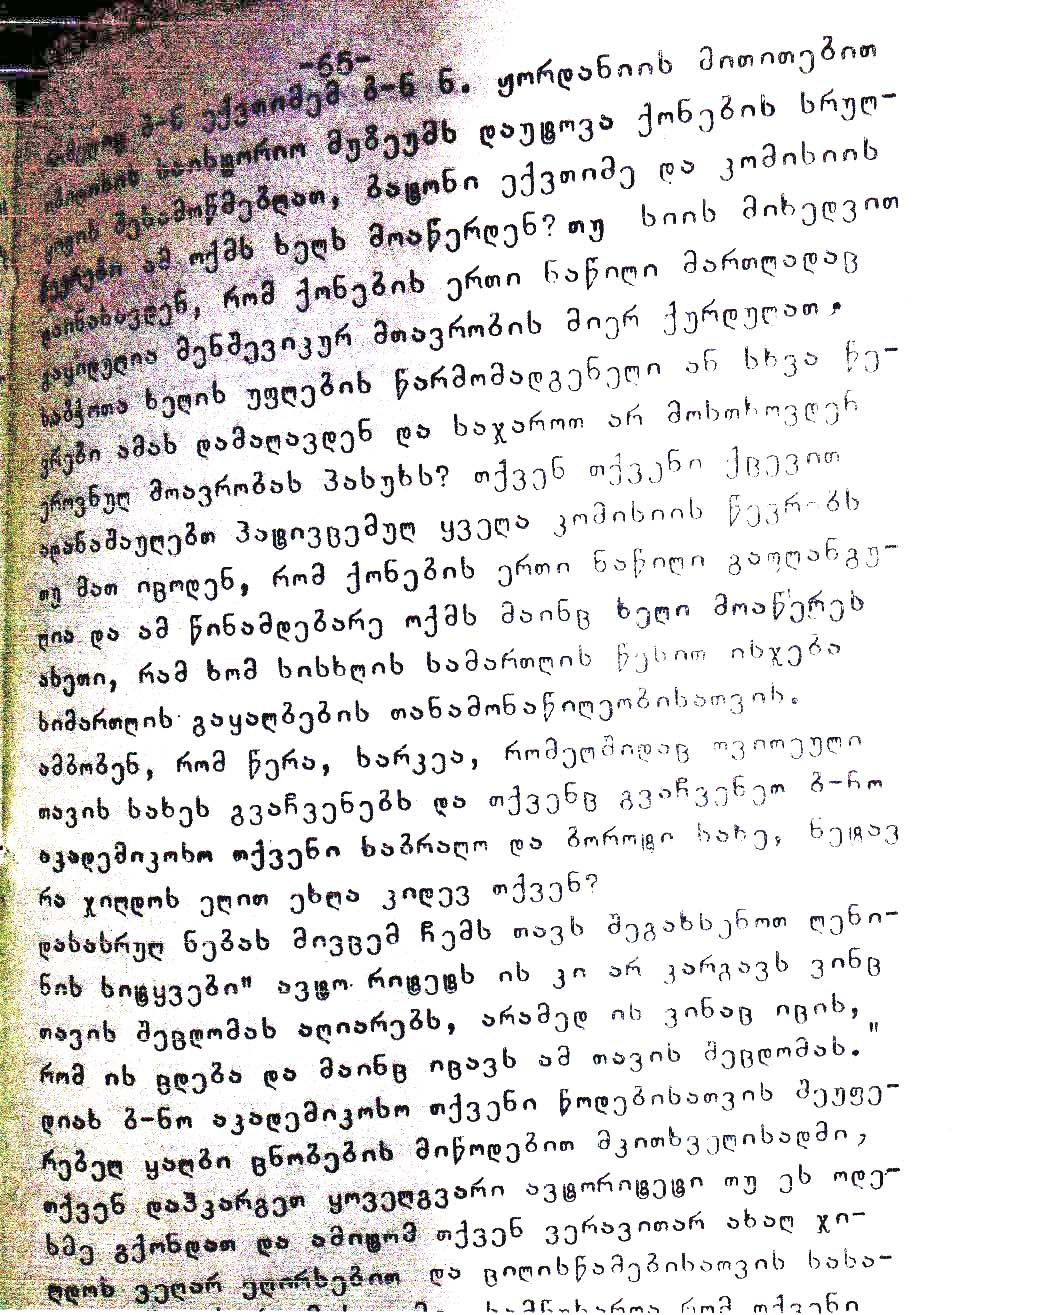 -65-
ბ-ნ ექვთიმემ ბ-ნ ნ. ჟორდანიის მითითებით
საისტორიო მუზეუმს დაუტოვა ქონების სრულ-
შესამოწმებლათ, ბატონი ექვთიმე და კომისიის
წევრები ამ ოქმს ხელს მოაწერდენ? თუ სიის მიხედვით
დაინახავდენ, რომ ქონების ერთი ნაწილი მართლადაც
გაყიდულია მენშევიკურ მთავრობის მიერ ქურდულათ,
საბჭოთა ხელის უფლების წარმომადგენელი ან სხვა წე-
ვრები ამას დამალავდენ და საჯაროთ არ მოსთხოვდენ
ეროვნულ მოავრობას პასუხს? თქვენ თქვენი ქცევით
ადანაშაულებთ პატივცემულ ყველა კომისიის წევრებს
თუ მათ იცოდენ, რომ ქონების ერთი ნაწილი გაფლანგუ-
ლია და ამ წინამდებარე ოქმს მაინც ხელი მოაწერეს
ასეთი, რამ ხომ სისხლის სამართლის წესით ისჯება
სიმართლის გაყალბების თანამონაწილეობისათვის.
ამბობენ, რომ წერა, სარკეა, რომელშიდაც თვითეული
თავის სახეს გვაჩვენებს და თქვენც გვაჩვენეთ ბ-ნო
აკადემიკოსო თქვენი საბრალო და ბოროტი სახე, ნეტავ
რა ჯილდოს ელით ეხლა კიდევ თქვენ?
დასასრულ ნებას მივცემ ჩემს თავს შეგახსენოთ ლენი-
ნის სიტყვები" ავტო რიტეტს ის კი არ კარგავს ვინც
თავის შეცდომას აღიარებს, არამედ ის ვინაც იცის,
რომ ის ცდება და მაინც იცავს ამ თავის შეცდომას."
დიახ ბ-ნო აკადემიკოსო თქვენი წოდებისათვის შეუფე-
რებელ ყალბი ცნობების მიწოდებით მკითხველისადმი,
თქვენ დაჰკარგეთ ყოველგვარი ავტორიტეტი თუ ეს ოდე-
სმე გქონდათ და ამიტომ თქვენ ვერავითარ ახალ ჯი-
ლდოს ვეღარ ეღირსებით და ცილისწამებისათვის სასა-
სამწუხაროა რომ თქვენი